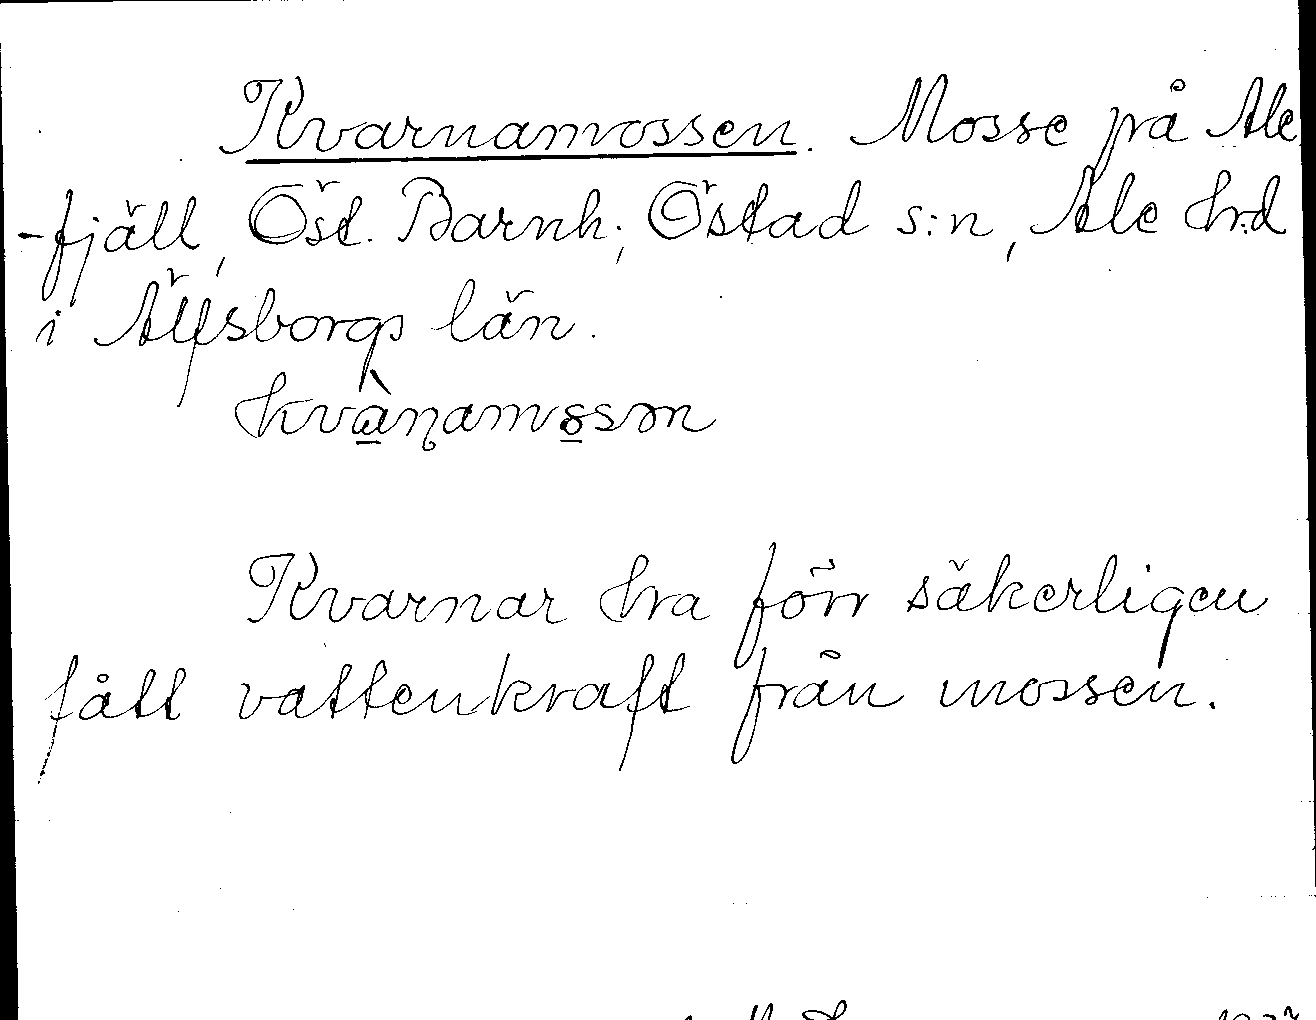 Kvarnamossen. Mosse på Ale
-fjäll, Öst. Barnh., Östad s:n, Ale hrd
i Älfsborgs län.
kvànamossn

Kvarnar ha förr säkerligen
fått vattenkraft från mossen.